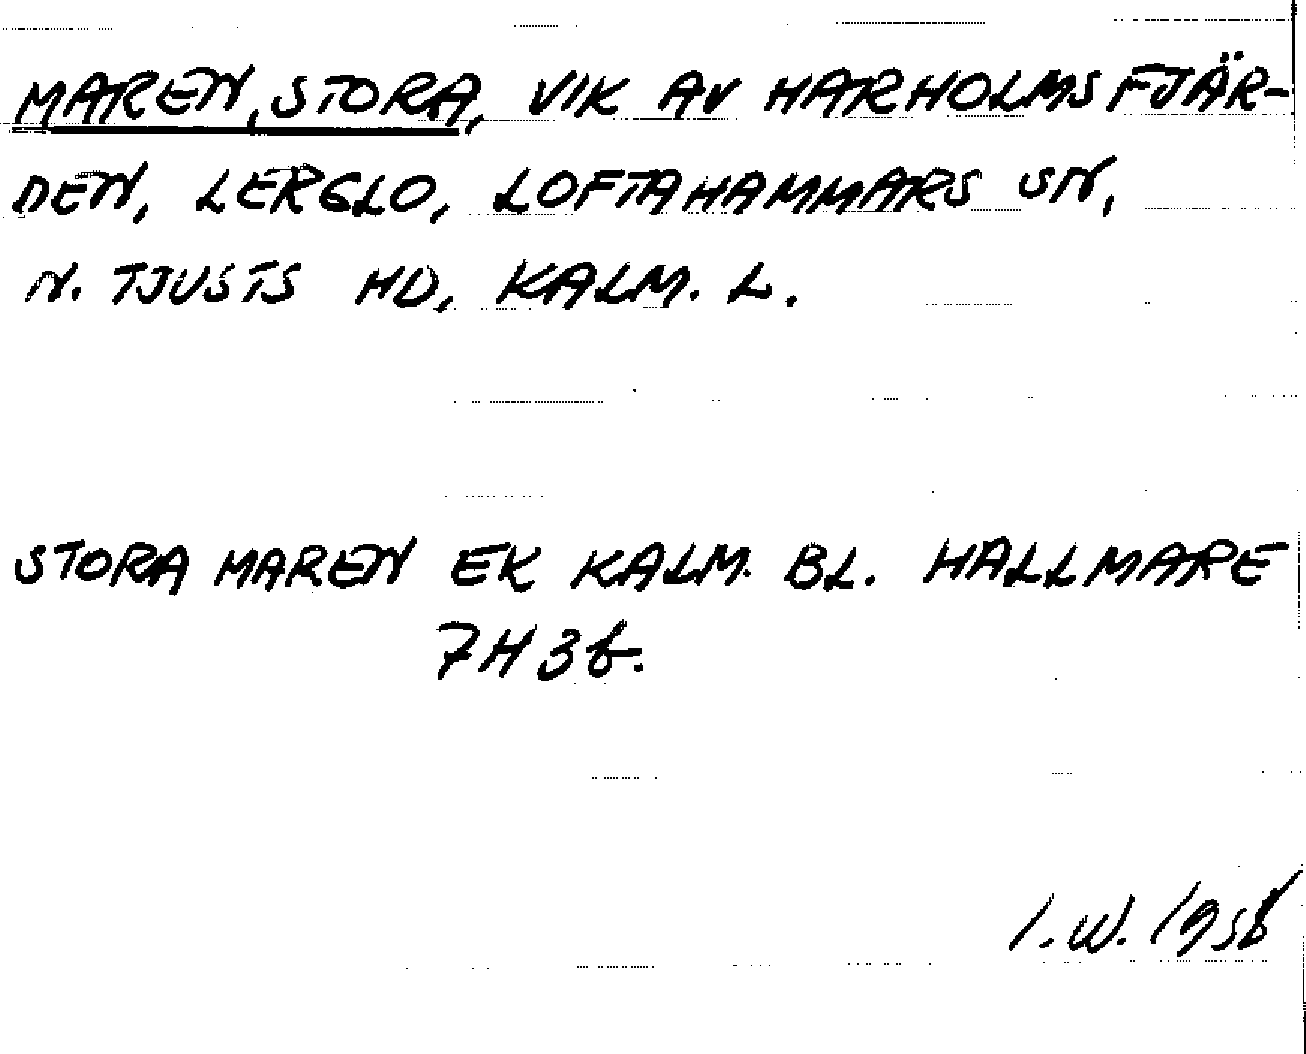 MAREN, STORA, VIK AV HARHOLMSFJÄR-
DEN, LERGLO, LOFTAHAMMARS SN,
N. TJUSTS HD, KALM. L.
STORA MAREN EK KALM. BL. HALLMARE
7H3b.
I.W. 1958